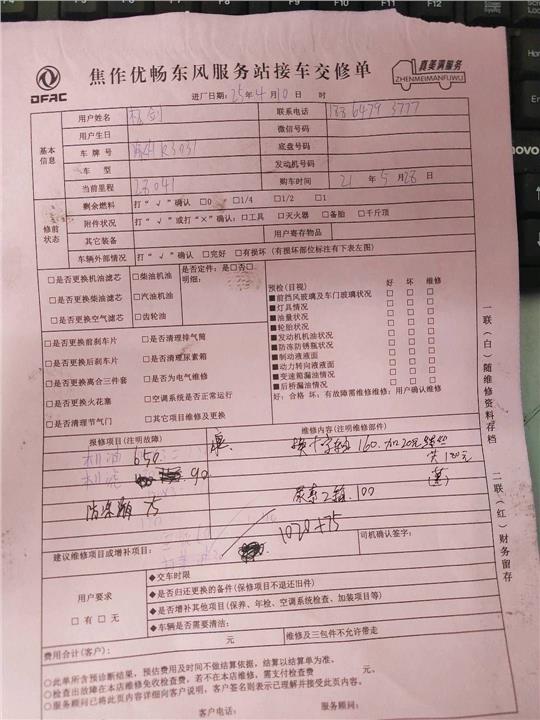 DFAC
焦作优畅东风服务站接车交修单
真美满服务
ZHENMEIMANFUWU
进厂日期: 25年4月10日 时
基本信息
用户姓名 联系电话
用户生日 微信号码
车牌号 R3031 底盘号码
车型 发动机号码
当前里程 28041 购车时间 21年5月28日
修前状态
剩余燃料 打“√”确认 □0 □1/4 □1/2 □1
附件状况 打“√”或打“×”确认:□工具 □灭火器 □备胎 □千斤顶
其它装备 用户寄存物品
车辆外部情况 打“√”确认 □完好 □有损坏 (有损坏部位标注有下表左图)
□是否更换机油滤芯 □柴油机油
□是否更换柴油滤芯 □汽油机油
□是否更换空气滤芯 □齿轮油
是否定件: 是□否□
明细:
□是否更换前刹车片 □是否清理排气筒
□是否更换后刹车片 □是否清理尿素箱
□是否更换离合三件套 □是否为电气维修
□是否更换火花塞 □空调系统是否正常运行
□是否清理节气门 □其它项目维修及更换
预检(目视) 好 坏 维修
■前挡风玻璃及车门玻璃状况 □ □ □
■灯具情况 □ □ □
■油量状况 □ □ □
■轮胎状况 □ □ □
■发动机机油状况 □ □ □
■防冻防锈瓶状况 □ □ □
■制动液液面 □ □ □
■动力转向液液面 □ □ □
■变速箱漏油情况 □ □ □
■后桥漏油情况 □ □ □
好: 合格 坏: 有故障需维修维修: 用户确认维修
报修项目(注明故障) 维修内容(注明维修部件)
机油 650 换十字轴 160. 加20元
共180元
机滤 90
尿素2箱.100
75
1020+75
建议维修项目或增补项目: 司机确认签字:
用户要求
□有 □无
◆交车时限
◆是否归还更换的备件(保修项目不退还旧件)
◆是否增补其他项目(保养、年检、空调系统检查、加装项目等)
◆车辆是否需要清洁:
费用合计(客户): 元 维修及三包件不允许带走
○此单所含预诊断结果,预估费用及时间不做结算依据,结算以结算单为准。
○检查出故障在本店维修免收检查费,若不在本店维修,需支付检查费 元。
○服务顾问已将此页内容详细向客户说明,客户签名则表示已理解并接受此页内容。
客户电话: 服务顾问:
一联(白)随维修资料存档
二联(红)财务留存